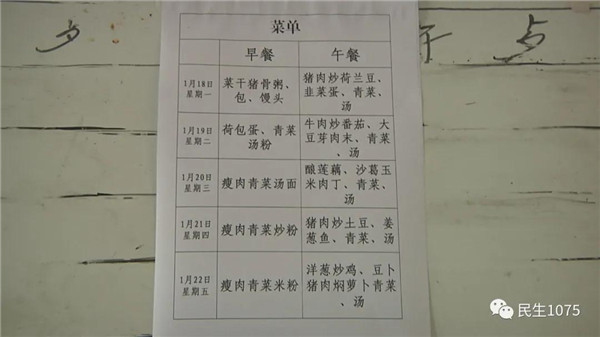 菜单
早餐 午餐
1月18日
星期一
菜干猪骨粥、
包、馒头
猪肉炒荷兰豆、
韭菜蛋、青菜、
汤
1月19日
星期二
荷包蛋、青菜
汤粉
牛肉炒番茄、大
豆芽肉末、青菜
、汤
1月20日
星期三
瘦肉青菜汤面
酿莲藕、沙葛玉
米肉丁、青菜、
汤
1月21日
星期四
瘦肉青菜炒粉
猪肉炒土豆、姜
葱鱼、青菜、汤
1月22日
星期五
瘦肉青菜米粉
洋葱炒鸡、豆卜
猪肉焖萝卜青菜
、汤
民生1075